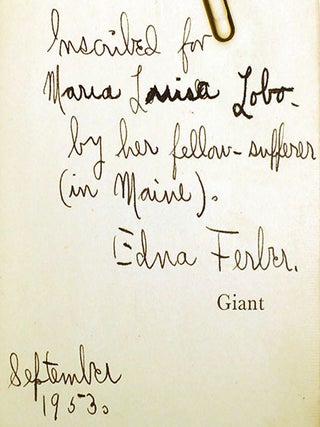 Inscribed for
Maria Louisa Lobo.
by her fellow-sufferer
(in Maine).
Edna Ferber.
Giant
September
1953.